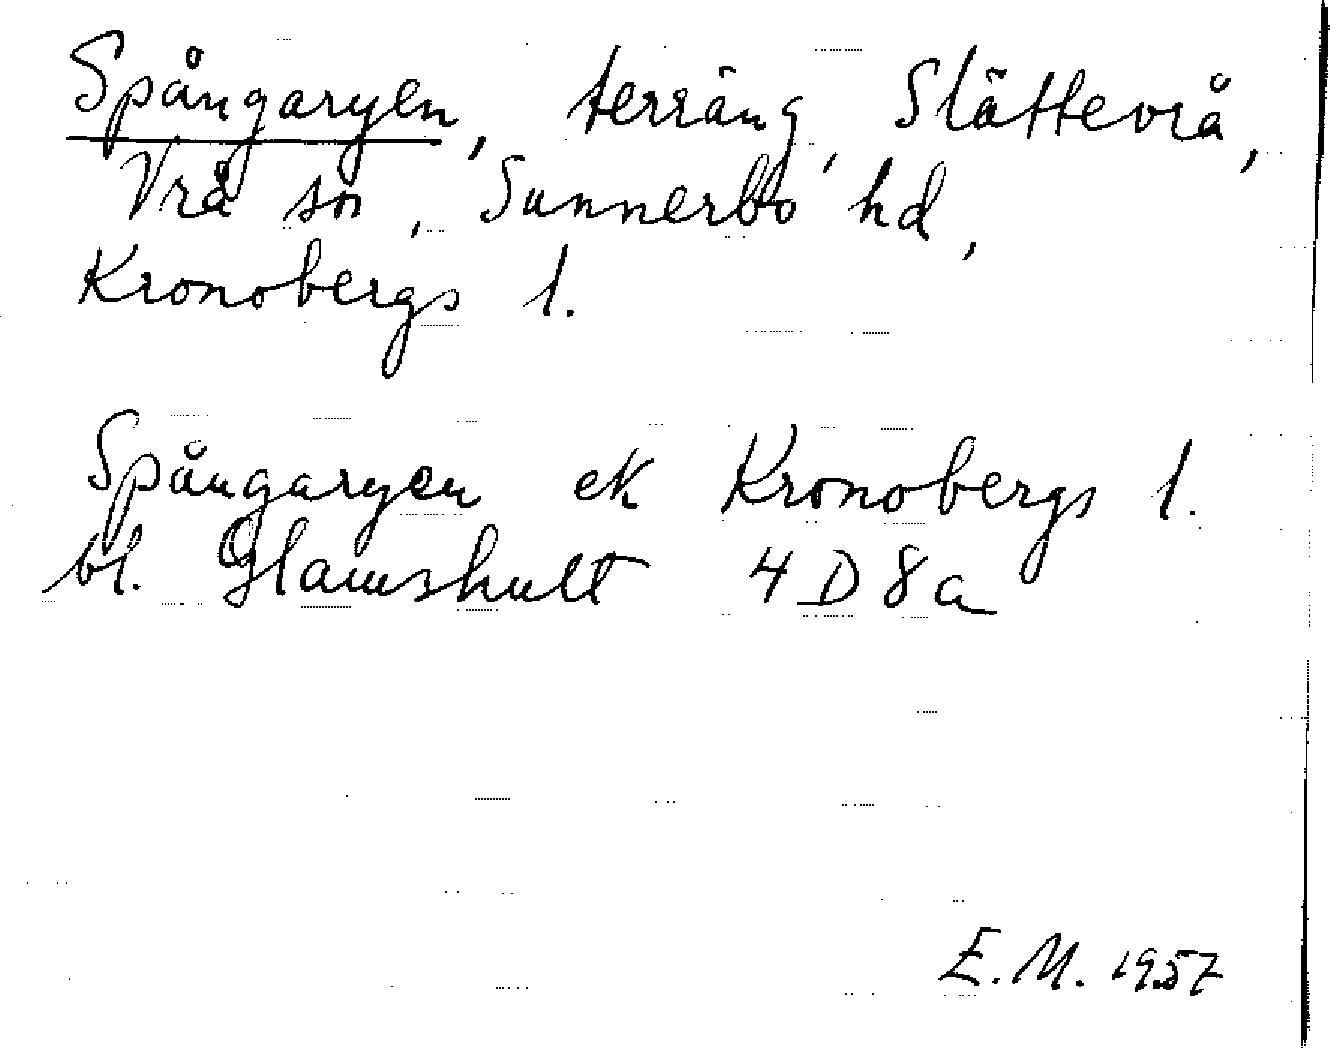 Spångaryen, terräng, Slättevrå,
Vrå sn, Sunnerbo hd,
Kronobergs l.
Spångaryen ek Kronobergs l.
bl. Glamshult 4D8a
E.M. 1957